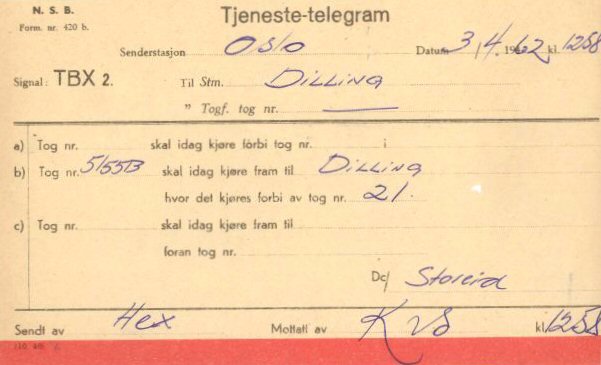 N. S. B.
Form. nr. 420 b.
Tjeneste-telegram
Senderstasjon Oslo Datum 3/4. 1962 kl. 1258
Signal: TBX 2. Til Stm. Dilling
" Togf. tog nr.
a) Tog nr. skal idag kjøre forbi tog nr. i
b) Tog nr. 5155B skal idag kjøre fram til Dilling
hvor det kjøres forbi av tog nr. 21.
c) Tog nr. skal idag kjøre fram til
foran tog nr.
Dc/
Sendt av Hex Mottatt av kl. 1258